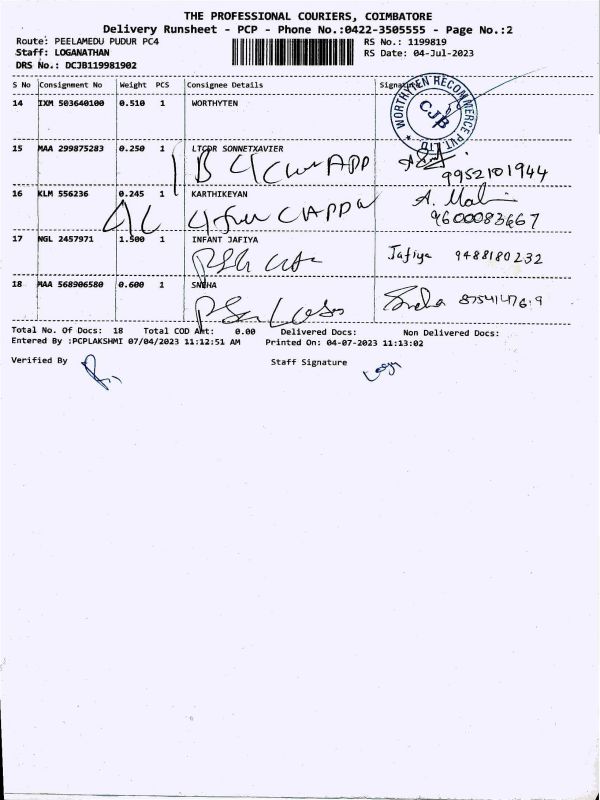 THE PROFESSIONAL COURIERS, COIMBATORE
Delivery Runsheet - PCP - Phone No.:0422-3505555 - Page No.:2
Route: PEELAMEDU PUDUR PC4 RS No.: 1199819
Staff: LOGANATHAN RS Date: 04-Jul-2023
DRS No.: DCJB119981902
S No Consignment No Weight PCS Consignee Details Signature
14 IXM 503640100 0.510 1 WORTHYTEN
WORTHYTEN RECOMMERCE PVT. LTD. CJB
15 MAA 299875283 0.250 1 LTCDR SONNETXAVIER
APP 9952101944
16 KLM 556236 0.245 1 KARTHIKEYAN
9600083667
17 NGL 2457971 1.500 1 INFANT JAFIYA
Jafiya 9488180232
18 MAA 568906580 0.600 1 SNEHA
Sneha
Total No. Of Docs: 18 Total COD Amt: 0.00 Delivered Docs: Non Delivered Docs:
Entered By :PCPLAKSHMI 07/04/2023 11:12:51 AM Printed On: 04-07-2023 11:13:02
Verified By Staff Signature